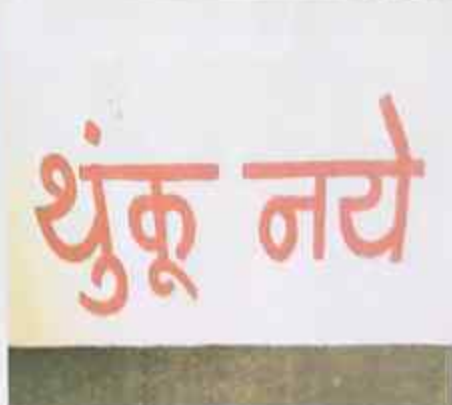 थुंकू नये